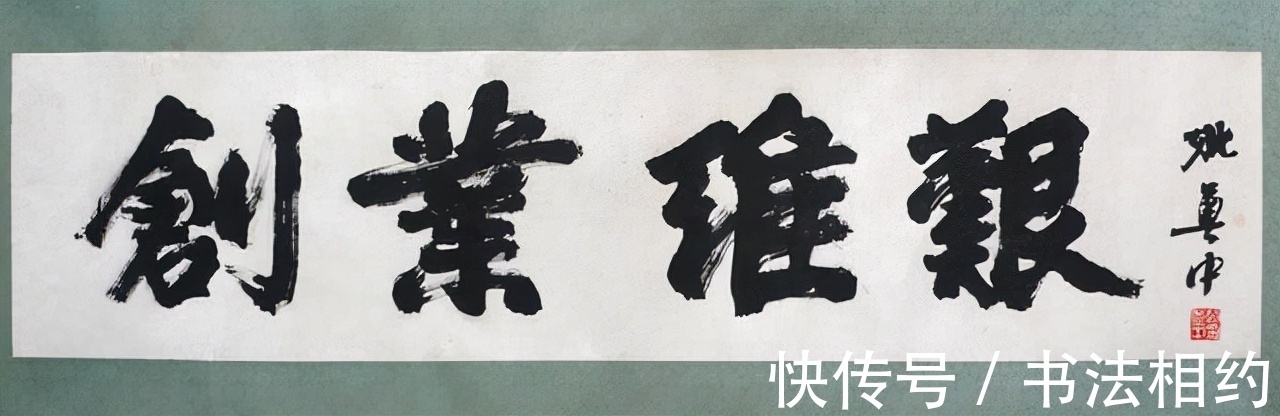 創業維艱
姚奠中
快传号 / 书法相约